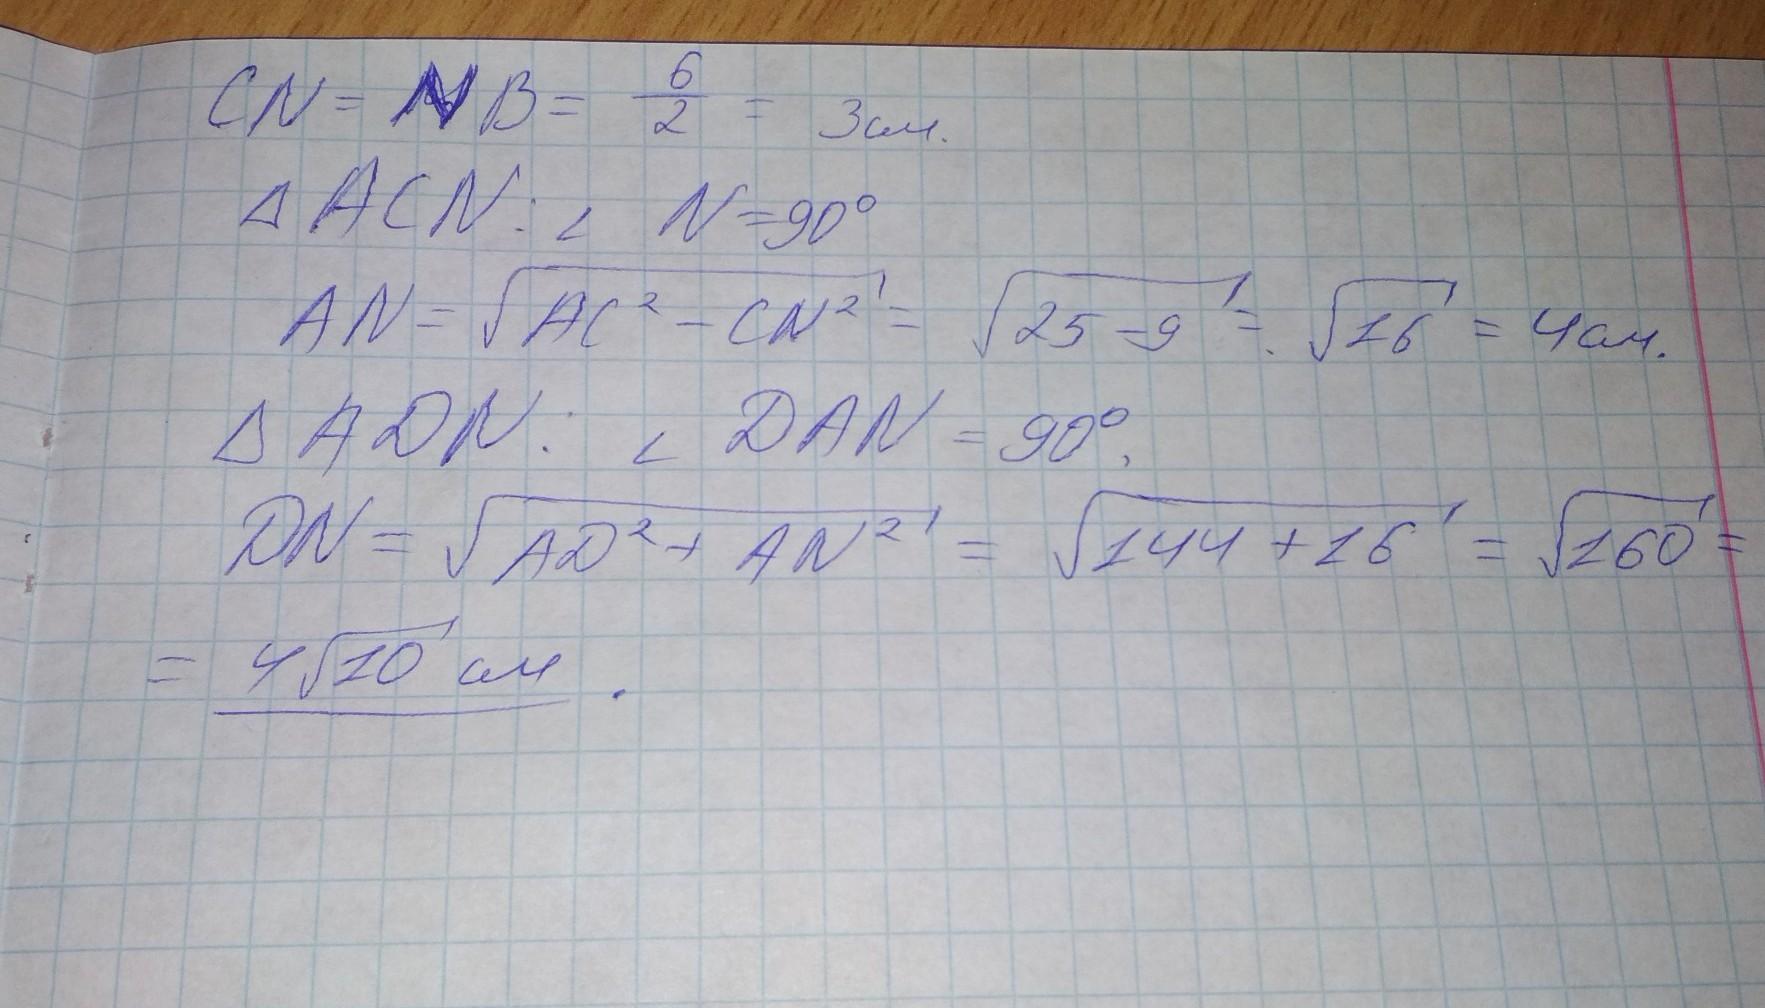 CN = NB = 6/2 = 3 см.
△ ACN: ∠ N = 90°
AN = √(AC² – CN²) = √(25 – 9) = √16 = 4 см.
△ ADN: ∠ DAN = 90°,
DN = √(AD² + AN²) = √(144 + 16) = √160 =
= 4√10 см.